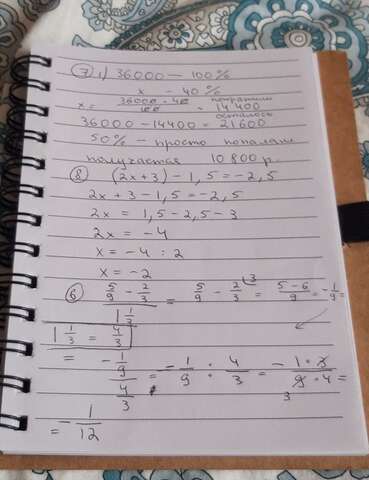 ⑦ 1) 36000 — 100%
x — 40%
x = 36000 · 40 / 100 = 14 400 потратили
36000 — 14400 = 21600 осталось
50% — просто пополам
получается 10 800 р.
⑧ (2x+3) — 1,5 = -2,5
2x + 3 - 1,5 = -2,5
2x = 1,5 - 2,5 - 3
2x = -4
x = -4 : 2
x = -2
⑥ (5/9 - 2/3) / (1 1/3) = 5/9 - 2/3 (3 = (5-6)/9 = -1/9 =
1 1/3 = 4/3
= (-1/9) / (4/3) = -1/9 : 4/3 = -(1 · 3)/(9 · 4) =
3
= -1/12